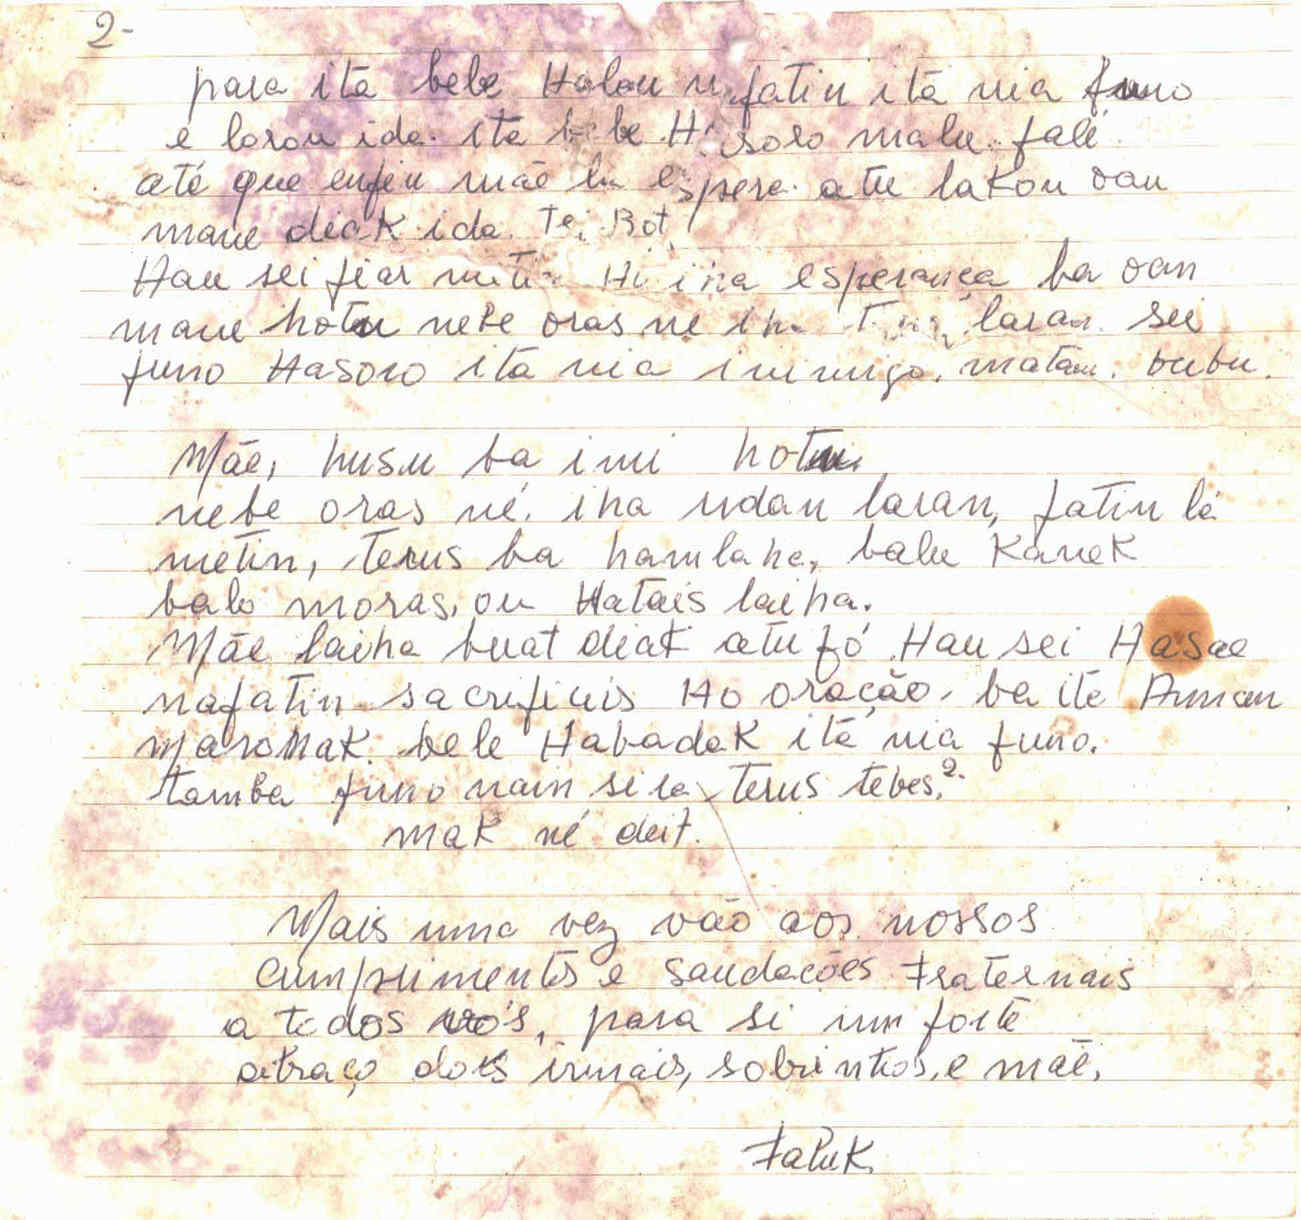 2-
para ita bebe Halou nafatin ita nia funo
e loron ida. ita bebe Hasoro malu fali
até que enfin mãe la espera atu lakon oan
mane diak ida. Tei Bot
Hau sei fiar metin Ho iha esperança ba oan
mane hotu nebe oras ne iha laran sei
funo Hasoro ita nia inimigo, matan bubu.
Mãe, husu ba imi hotu
nebe oras né, iha udan laran, fatin lá
metin, terus ba hamlaha, balu Kanek
balo moras, ou Hatais laiha.
Mãe laiha buat diak atu fó Hau sei Hasae
nafatin sacrificis Ho oração, ba ita Aman
Maromak bele Habadak ita nia funo.
tamba funo nain sila terus tebes 2.
mak né deit.
Mais uma vez vão aos nossos
cumprimentos e Saudacões Fraternais
a todos vós, para si um forte
abraço dois irmais, sobrinhos, e mãe,
FaluK